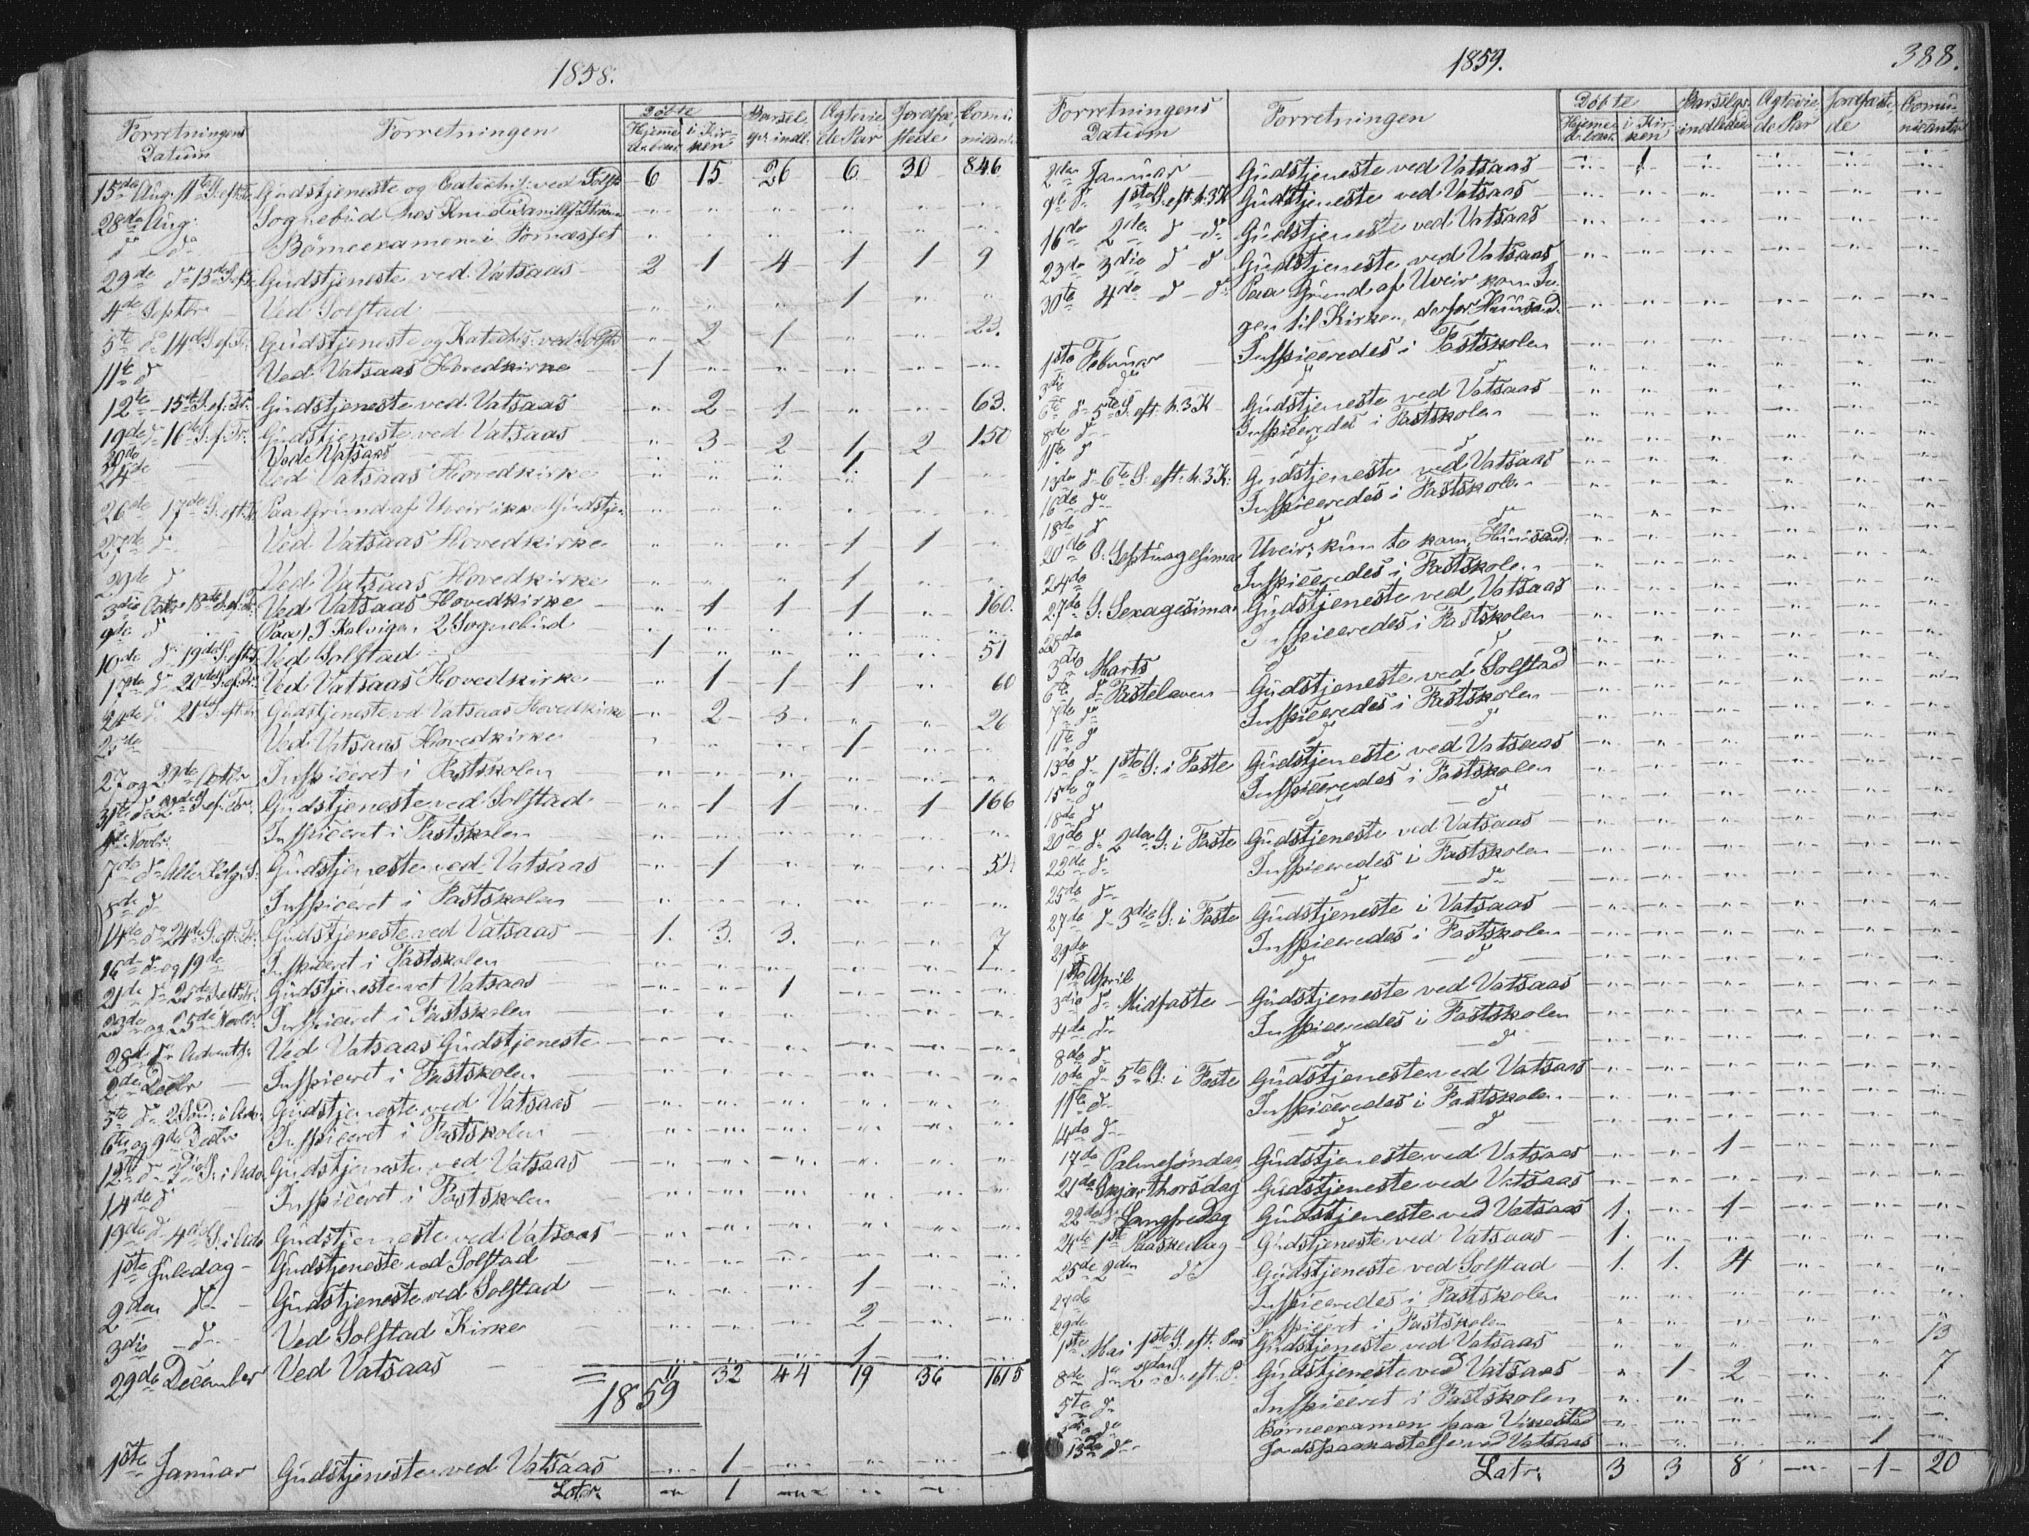 1858.
Forretningens Datum | Forretningen | Döbte Hjemme i Kirken | Barsel | Ægtevie de Par | Jordfæstede | Comunicanter
6 15 26 6 30 846
15de Aug. 11te S. eft. Gudstjeneste og Catechis. ved Solstad
28de Aug. Sognebud hos Knud
d d Börneexamen i Fornæsset
29de d 13de S. Gudstjeneste ved Vatsaas 2 1 4 1 1 9
4de Septbr Ved Solstad 1
5te d 14de S. ef. Tr. Gudstjeneste og Katechis. ved Solstad 2 1 23.
11te d Ved Vatsaas Hovedkirke 1
12te 15de S. ef. Tr. Gudstjeneste ved Vatsaas 2 1 63.
19de d 16de S. ef. Tr. Gudstjeneste ved Vatsaas 3 2 1 2 150
20de Vede Vatsaas
24de Ved Vatsaas Hovedkirke 1. 1
26de 17de S. eft. Paa Grund af Uveir ikke Gudstjen.
27de d Ved Vatsaas Hovedkirke 1 1
29de d Ved Vatsaas Hovedkirke 1
3die Octbr 18de S. ef. Tr. Ved Vatsaas Hovedkirke 1 1 1 160.
9de d Paa Kalvigen 2 Sognebud
10de d 19de S. eft. Ved Solstad 1 51
17de d 20de S. ef. Ved Vatsaas Hovedkirke 1 1 1 60
24de d 21de S. eft. Gudstjeneste ved Vatsaas Hovedkirke 2 3 26
25de Ved Vatsaas Hovedkirke 1
27 og 29de Octbr Inspiceret i Fastskolen
31te d 22de S. ef. Tr. Gudstjeneste ved Solstad 1 1 1 166
4de Novbr. Inspiceret i Fastskolen
7de d Alle Helg. S. Gudstjeneste ved Vatsaas 1 54
8de d Inspiceret i Fastskolen
14de d 24de S. eft. Tr. Gudstjeneste ved Vatsaas 1. 3. 3. 7
16de d og 19de Inspiceret i Fastskolen
21de d 25de S. eft. Tr. Gudstjeneste vet Vatsaas 1
23de og 25de Novbr. Inspiceret i Fastskolen
28de d Advents Ved Vatsaas Gudstjeneste
2de Decbr Inspiceret i Fastskolen
5te d 2 Sönd. i Adv. Gudstjeneste ved Vatsaas
6te og 9de Decbr Inspiceret i Fastskolen
12te d 3die S. i Adv. Gudstjeneste ved Vatsaas
14de d Inspiceret i Fastskolen
19de d 4de S. i Adv. Gudstjeneste ved Vatsaas
1ste Juledag Gudstjeneste ved Solstad
2den d Gudstjeneste ved Solstad 1
3die d Ved Solstad Kirke 2
29de December Ved Vatsaas 1
11 32 44 19 36 1615
1859
1ste Januar Gudstjeneste ved Vatsaas 1
Latr: 1
1859. 388.
Forretningens Datum | Forretningen | Döbte Hjemme i Kirken | Barselqs. indledede | Ægteviede Par | Jordfæstede | Comunicanter
2den Januar Gudstjeneste ved Vatsaas 1
9de d 1ste S. eft. h. 3 K Gudstjeneste ved Vatsaas
16de 2den d d Gudstjeneste ved Vatsaas
23de 3die d d Gudstjeneste ved Vatsaas
30te 4de d d Paa Grund af Uveir kom In-
gen til Kirken, derfor Huusand.
1ste Februar Inspiceredes i Fastskolen
3die d d
6te d 5te S. eft. h. 3 K Gudstjeneste ved Vatsaas
8de d Inspiceredes i Fastskolen
11te d d d
13de d 6te S. eft. h. 3 K. Gudstjeneste ved Vatsaas
16de d Inspiceredes i Fastskolen
18de d d d
20de S. Septuagesima Uveir; kun to kom, Huusand.
24de Inspiceredes i Fastskolen
27de S. Sexagesima Gudstjeneste ved Vatsaas
28de Inspiceredes i Fastskolen
3die Marts d d
6te d Fastelaven Gudstjeneste ved Solstad
7de d Inspiceredes i Fastskolen
11te d d d
13de d 1ste S. i Faste Gudstjeneste ved Vatsaas
15de d Inspiceredes i Fastskolen
18de d d d
20de d 2den S. i Faste Gudstjeneste ved Vatsaas
22de d Inspiceredes i Fastskolen
25de d d d
27de d 3die S. i Faste Gudstjeneste i Vatsaas
29de Inspiceredes i Fastskolen
1ste April d d
3die d Midfaste Gudstjeneste ved Vatsaas
4de d Inspiceredes i Fastskolen
8de d d d
10de d 5te S. i Faste Gudstjeneste ved Vatsaas
11te d Inspiceredes i Fastskolen
14de d d d
17de Palmesöndag Gudstjeneste ved Vatsaas 1
21de Skjærthorsdag Gudstjeneste ved Vatsaas
22de Langfredag Gudstjeneste ved Vatsaas 1. 1
24de 1ste Paaskedag Gudstjeneste ved Vatsaas 1.
25de 2den d Gudstjeneste ved Solstad 1. 1. 4
27de Inspiceredes i Fastskolen
29de Inspiceret i Fastskolen
1ste Mai 1ste S. eft. Paas Gudstjeneste ved Vatsaas 13
8de d 2den S. eft. P. Gudstjeneste ved Vatsaas 1 2 7
5te d Inspiceret i Fastskolen
d Börneexamen paa Vikestad
13de d Jordspaakastelse ved Vatsaas 1
Latr: 3 3 8 1 20